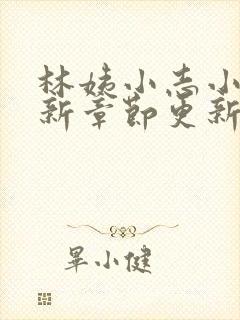 林姨小志小
新章节更新
畢小健